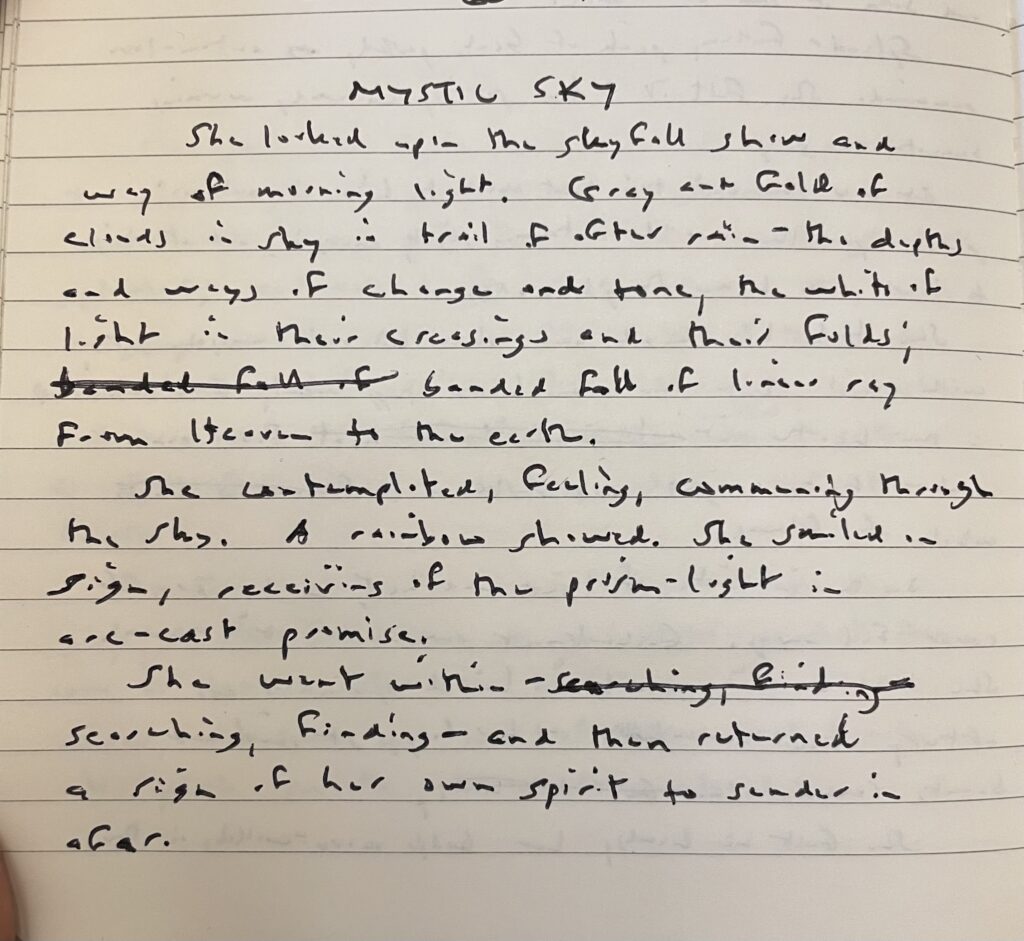 MYSTIC SKY
She looked upon the skyfall show and
way of morning light. Gray and Gold of
clouds in sky in trail of after rain - the depths
and ways of change and tone, the white of
light in their creasings and their folds;
banded fall of banded fall of linear ray
from Heaven to the earth.
She contemplated, feeling, communing through
the sky. A rainbow showed. She smiled in
sign, receiving of the prism-light in
arc-cast promise.
She went within - searching, finding
searching, finding - and then returned
a sign of her own spirit to sender in
afar.